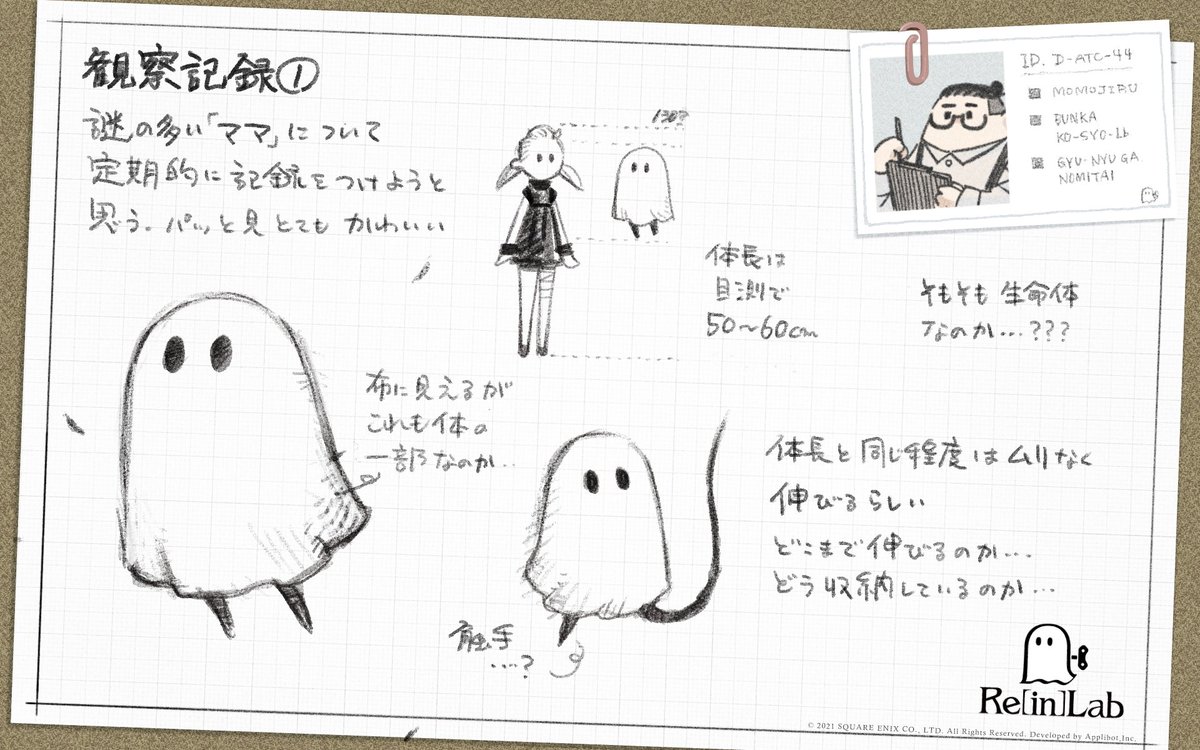 観察記録①
謎の多い「ママ」について
定期的に記録をつけようと
思う。パッと見とてもかわいい
130?
体長は
目測で
50~60cm
そもそも生命体
なのか…???
布に見えるが
これも体の
一部なのか…
体長と同じ程度はムリなく
伸びるらしい
どこまで伸びるのか…
どう収納しているのか…
触手
…?
ID. D-ATC-44
MOMOJIRU
BUNKA
KO-SYO-16
GYU-NYU GA
NOMITAI
Re[in]Lab
© 2021 SQUARE ENIX CO., LTD. All Rights Reserved. Developed by Applibot,Inc.